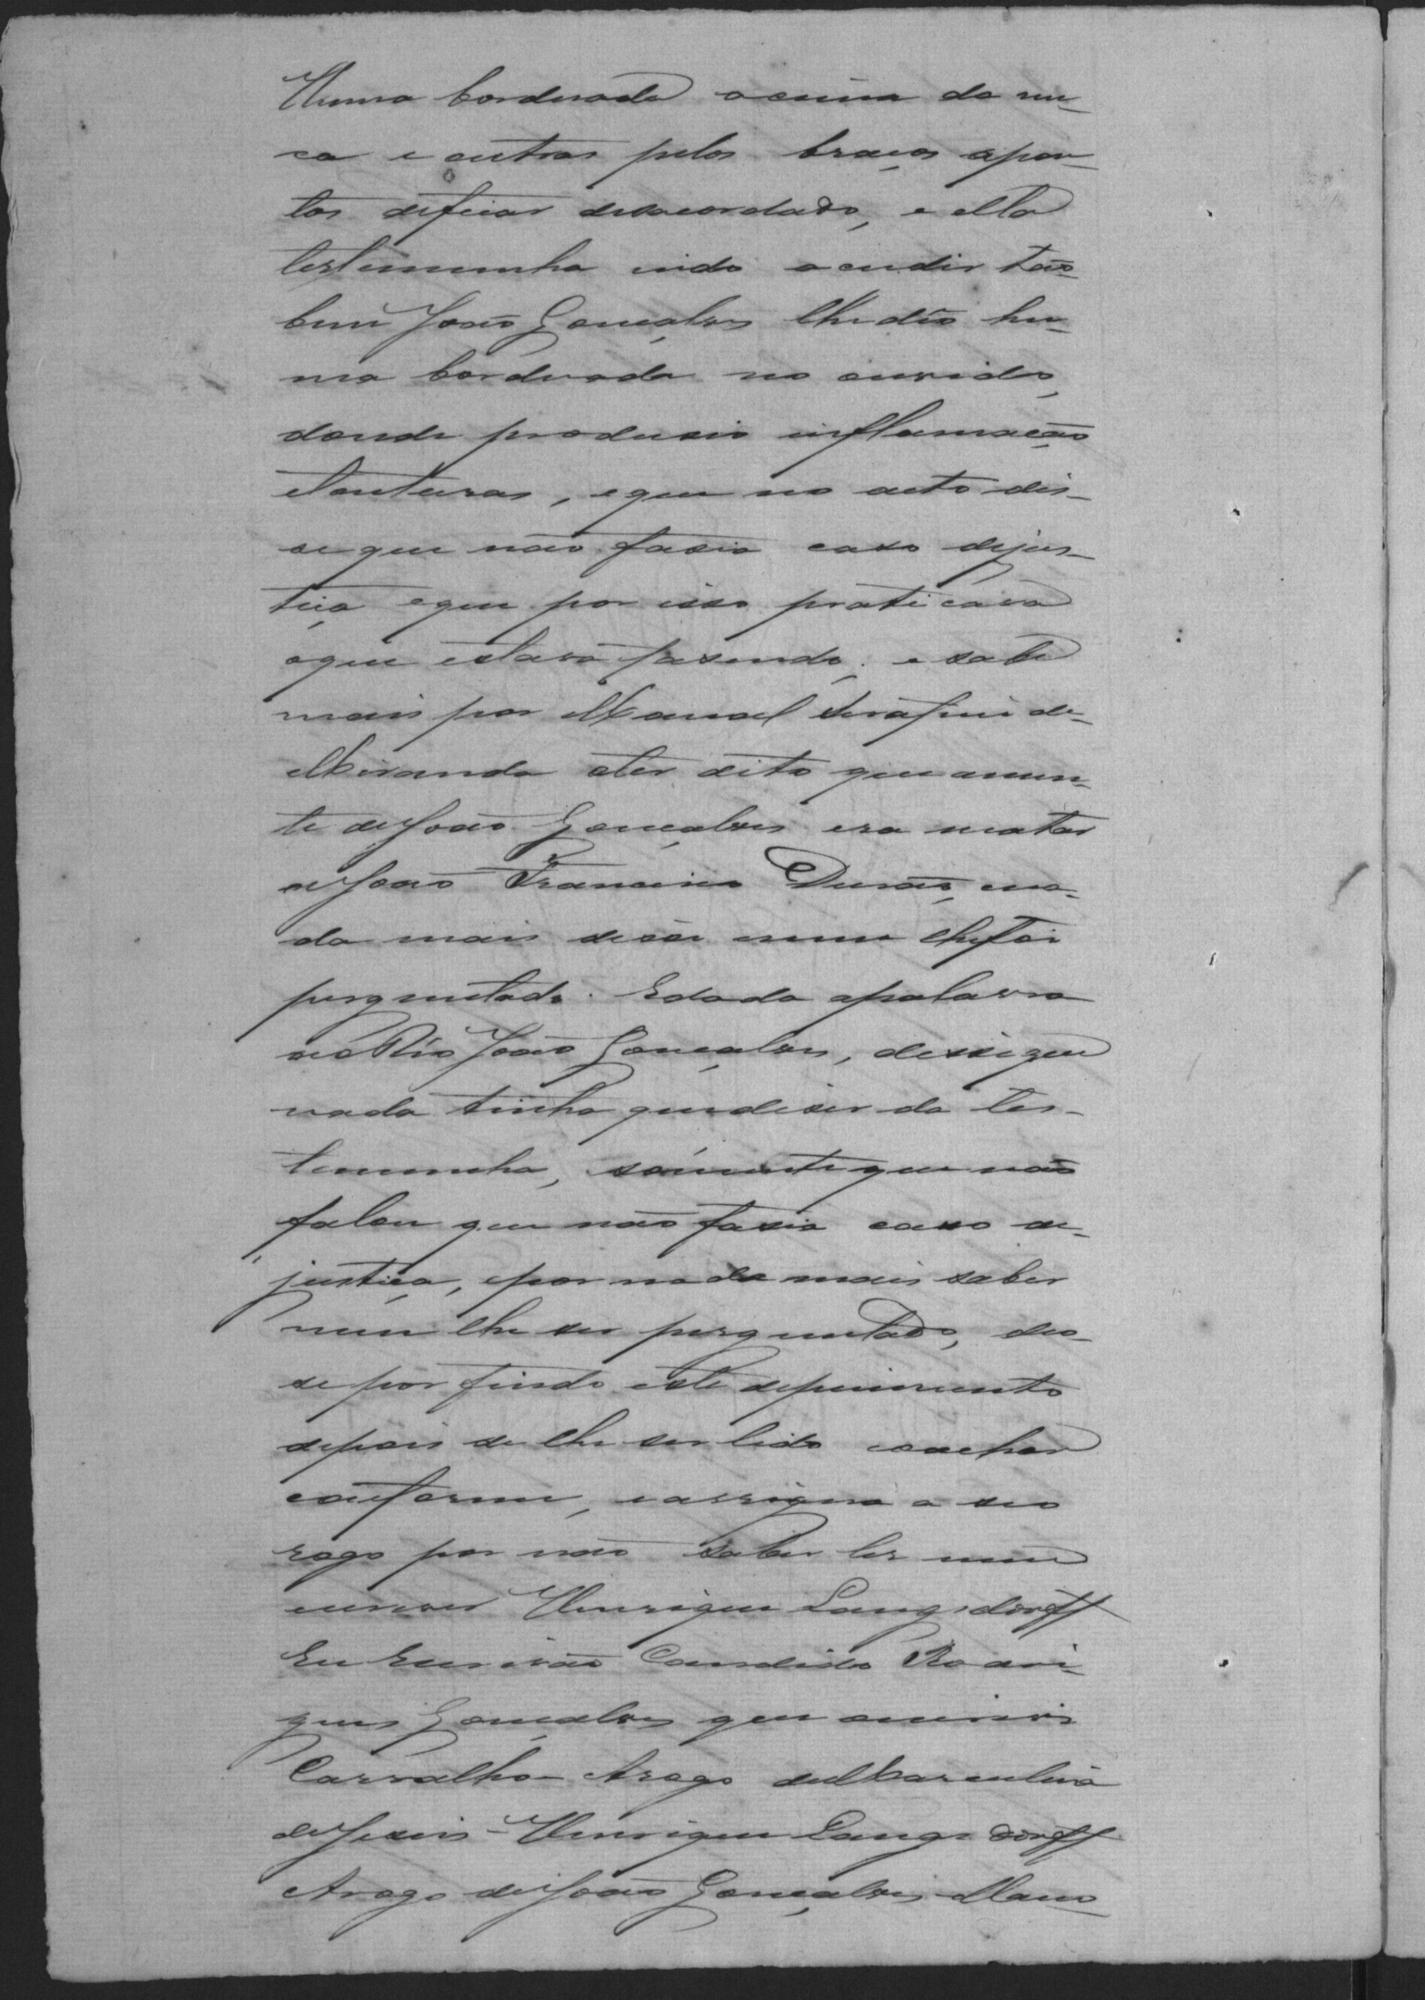 Huma bordunada acima da nu-
ca e outras pelos braços apon-
tos deficar desacordado, e ella
testemunha indo acudir tão-
bem João Gonçalves lhe dêo hu-
ma bordunada no ouvido,
donde produsio inflamação
etonturas, eque no acto dis-
se que não fasia caso dejus-
tiça eque por isso praticava
oque estava fasendo; e sabe
mais por Manoel Serafim de
Miranda ter dito que amen-
te deJoão Gonçalves era matar
aJoão Francisco Durão, ena-
da mais disse nem lhefoi
perguntado. Edada apalavra
aoRéo João Gonçalves, disse que
nada tinha quediser da tes-
temunha, sómente que não
falou que não fasia caso de
justiça, epor nada mais saber
nem lhe ser perguntado, deo-
se por findo este depoimento
depois de lhe ser lido eoachar
conforme, eassigna a seo
rogo por não saber ler nem
escrever Henrique Langsdorff
Eu Escrivão Candido Rodri-
gues Gonçalves que escrevi
Carvalho - Arogo deMarcelina
deJesus - Henrique Langsdorff
Arogo deJoão Gonçalves Mano